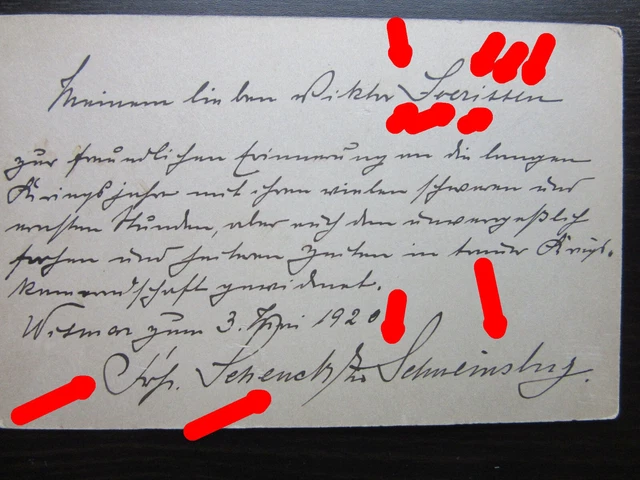 Meinem lieben Viktor
zur freundlichen Erinnerung an die langen
Kriegsjahre mit ihren vielen schweren und
ernsten Stunden, aber auch den unvergeßlich
frohen und heiteren Zeiten in treuer Kriegs-
kameradschaft gewidmet.
Wismar zum 3. Mai 1920
Frh. Schenck zu Schweinsbg.